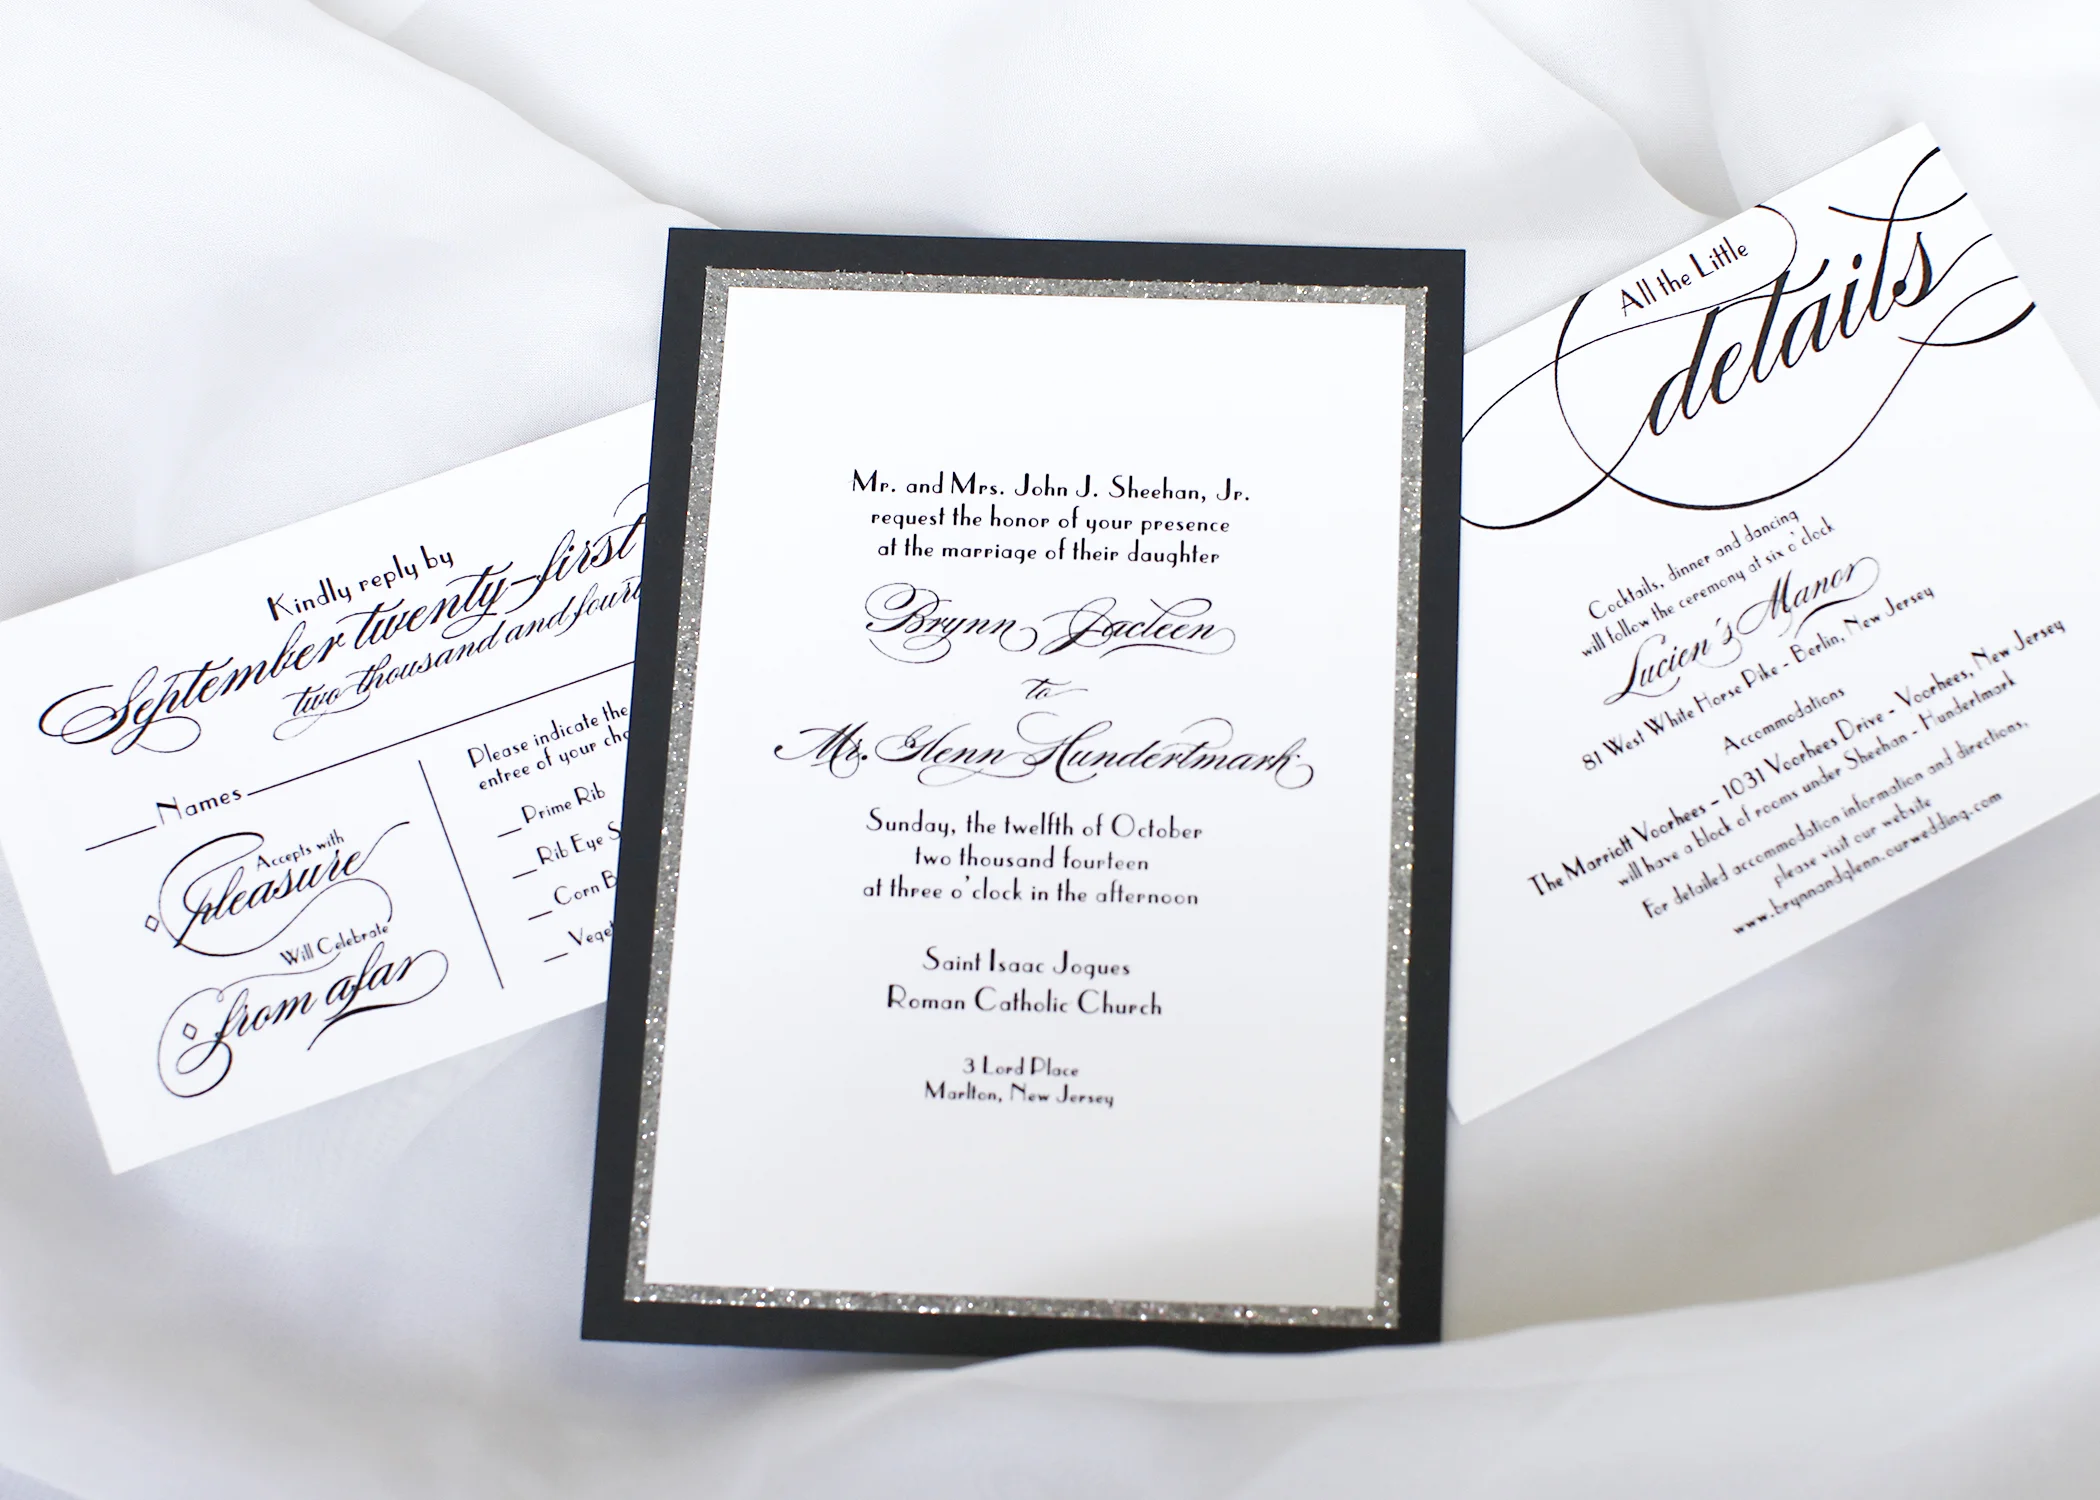 Kindly reply by
September twenty-first
two thousand and fourt
Names
Accepts with
pleasure
Will Celebrate
from afar
Please indicate the
entree of your cho
Prime Rib
Rib Eye S
Corn B
Veget
Mr. and Mrs. John J. Sheehan, Jr.
request the honor of your presence
at the marriage of their daughter
Brynn Jacleen
to
Mr. Glenn Hundertmark
Sunday, the twelfth of October
two thousand fourteen
at three o'clock in the afternoon
Saint Isaac Jogues
Roman Catholic Church
3 Lord Place
Marlton, New Jersey
All the Little
details
Cocktails, dinner and dancing
will follow the ceremony at six o'clock
Lucien's Manor
81 West White Horse Pike - Berlin, New Jersey
Accommodations
The Marriott Voorhees - 1031 Voorhees Drive - Voorhees, New Jersey
will have a block of rooms under Sheehan - Hundertmark
For detailed accommodation information and directions,
please visit our website
www.brynnandglenn.ourwedding.com